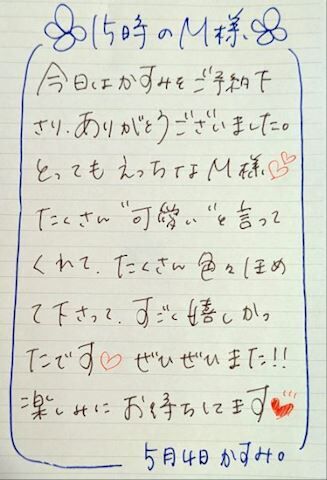 15時のM様
今日はかすみをご予約下
さり、ありがとうございました。
とってもえっちなM様♡♡
たくさん"可愛い"と言って
くれて、たくさん色々ほめ
て下さって、すごく嬉しかっ
たです♡ ぜひぜひまた!!
楽しみにお待ちしてます♥
5月4日 かすみ。